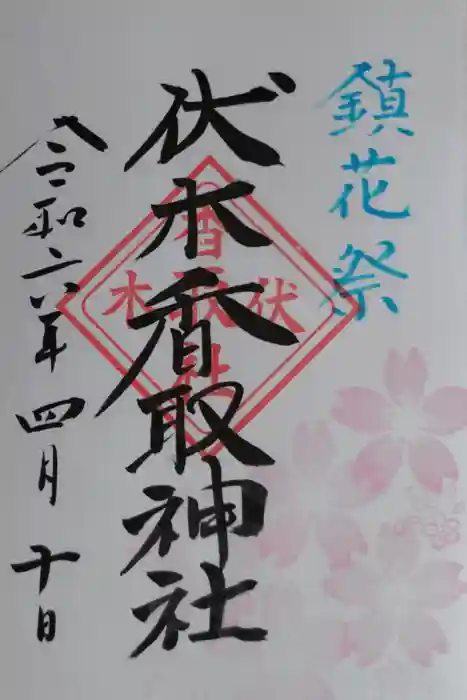 鎮花祭
伏木香取神社
令和六年 四月 十日
伏木
香取
社